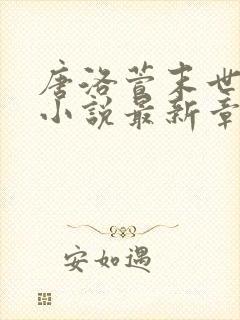 唐洛萱末世
小说最新章
安如遇